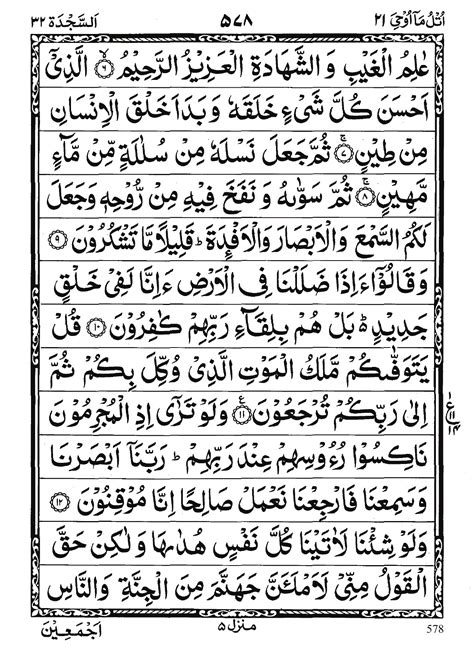 اُتْلُ مَآ اُوْحِیَ ٢١ ٥٧٨ اَلسَّجْدَة ٣٢
عٰلِمُ الْغَیْبِ وَ الشَّهَادَةِ الْعَزِیْزُ الرَّحِیْمُ ۙ﴿٦﴾ الَّذِیْۤ
اَحْسَنَ كُلَّ شَیْءٍ خَلَقَهٗ وَ بَدَاَ خَلْقَ الْاِنْسَانِ
مِنْ طِیْنٍ ۚ﴿٧﴾ ثُمَّ جَعَلَ نَسْلَهٗ مِنْ سُلٰلَةٍ مِّنْ مَّآءٍ
مَّهِیْنٍ ۚ﴿٨﴾ ثُمَّ سَوّٰىهُ وَ نَفَخَ فِیْهِ مِنْ رُّوْحِهٖ وَ جَعَلَ
لَكُمُ السَّمْعَ وَ الْاَبْصَارَ وَ الْاَفْـِٕدَةَ ؕ قَلِیْلًا مَّا تَشْكُرُوْنَ ﴿٩﴾
وَ قَالُوْۤا ءَاِذَا ضَلَلْنَا فِی الْاَرْضِ ءَاِنَّا لَفِیْ خَلْقٍ
جَدِیْدٍ ؕ۬ بَلْ هُمْ بِلِقَآئِ رَبِّهِمْ كٰفِرُوْنَ ﴿١٠﴾ قُلْ
یَتَوَفّٰىكُمْ مَّلَكُ الْمَوْتِ الَّذِیْ وُكِّلَ بِكُمْ ثُمَّ
اِلٰی رَبِّكُمْ تُرْجَعُوْنَ ۠﴿١١﴾ وَ لَوْ تَرٰۤی اِذِ الْمُجْرِمُوْنَ
ع ١١ ١٤
نَاكِسُوْا رُءُوْسِهِمْ عِنْدَ رَبِّهِمْ ؕ رَبَّنَاۤ اَبْصَرْنَا
وَ سَمِعْنَا فَارْجِعْنَا نَعْمَلْ صَالِحًا اِنَّا مُوْقِنُوْنَ ﴿١٢﴾
وَ لَوْ شِئْنَا لَاٰتَیْنَا كُلَّ نَفْسٍ هُدٰىهَا وَ لٰكِنْ حَقَّ
الْقَوْلُ مِنِّیْ لَاَمْلَـَٔنَّ جَهَنَّمَ مِنَ الْجِنَّةِ وَ النَّاسِ
اَجْمَعِیْنَ منزل ٥ 578